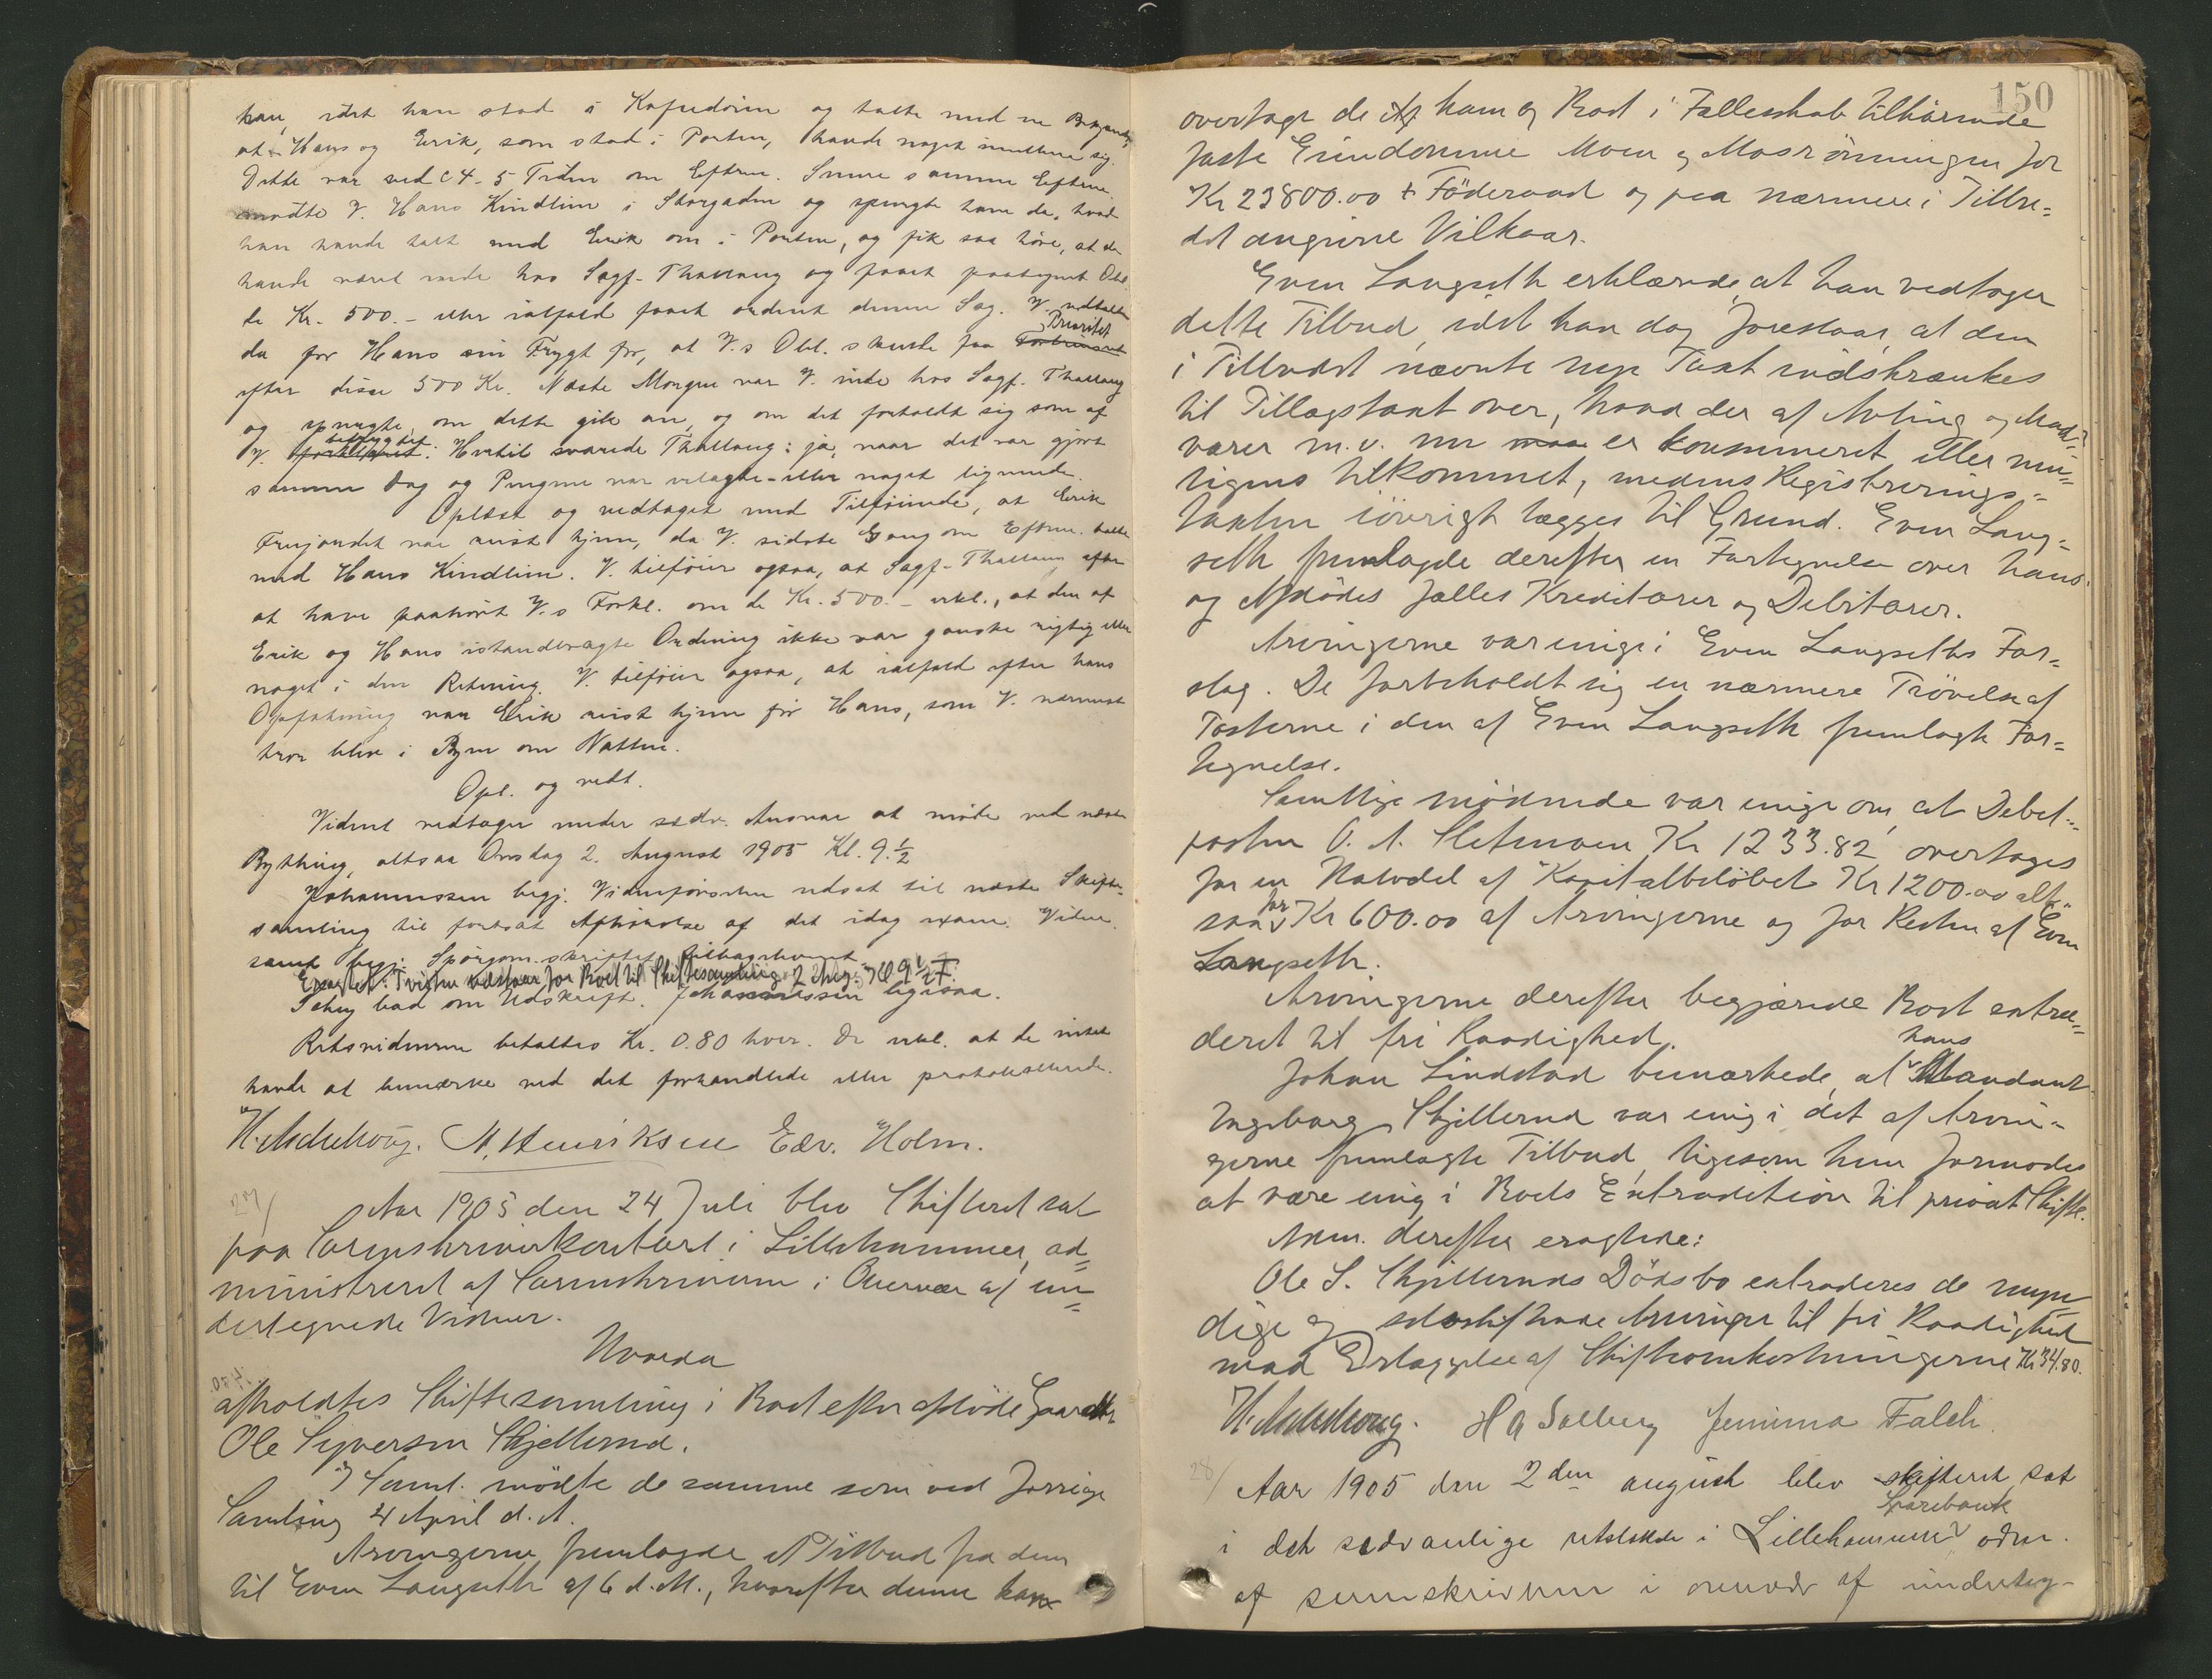 han, idet han stod i Kafeedøren og talte med en
at Hans og Erik, som stod i Porten, havde noget imellem sig.
Dette var ved c 4-5 Tiden om Efterm. Senere samme Efterm.
mødte V. Hans Kindlien i Storgaden og spurgte ham da, hvad
han havde talt med Erik om i Porten, og fik saa høre, at de
havde været inde hos Sagf. Thallaug og faaet paategnet Obl.
de Kr. 500.- eller ialfald faaet ordnet denne Sag. V. udtalte
da for Hans sin Frygt for, at V.s Obl. skulde faa Prioritet
efter disse 500 Kr. Næste Morgen var V. inde hos Sagf. Thallaug
og spurgte, om dette gik an, og om det forholdt sig som af
V. befrygtet. Hertil svarede Thallaug: ja, naar det var gjort
samme Dag og Pengene var vilagte - eller noget lignende.
Oplæst og vedtaget med Tilføiende, at Erik
Frujordet var reist hjem, da V. sidste Gang om Efterm. talte
med Hans Kindlien. V. tilføier ogsaa, at Sagf. Thallaug efter
at have paahørt V.s Forkl. om de Kr. 500.- erkl., at den af
Erik og Hans istandbragte Ordning ikke var ganske rigtig eller
noget i den Retning. V. tilføier ogsaa, at ialfald efter hans
Opfatning var Erik reist hjem før Hans, som V. nærmest
tror blev i Byen om Natten.
Opl. og vedt.
Vidnet vedtager under sædv. Ansvar at møde ved næste
Bything, altsaa Onsdag 2. August 1905 Kl. 9 1/2
Johannessen begj. Vidneførselen udsat til næste Skifte-
samling til fortsat Afhørelse af det idag exam. Vidne.
samt begj. Spørgsm.skriftet tilbageleveret.
Eragtet: Tvisten udstaar for Boet til Skiftesamling 2 Aug. Kl 9 1/2 F.
Schey bad om Udskrift. Johannessen ligesaa.
Retsvidnerne betaltes Kr. 0.80 hver. De erkl. at de intet
havde at bemærke ved det forhandlede eller protokollerede.
H. Aschehoug. A. Henriksen Edv. Holm.
27/
Aar 1905 den 24 Juli blev Skifteret sat
paa Sorenskriverkontoret i Lillehammer, ad=
ministreret af Sorenskriveren i Overvær af un=
dertegnede Vidner.
Hvorda
afholdtes Skiftesamling i Boet efter afdøde Gaardbr
Ole Syversen Skjellerud.
I Saml. mødte de samme som ved forrige
Samling 4 April d. A.
Arvingerne fremlagde et Tilbud fra dem
til Even Langseth af 6 d. M., hvorefter denne kan
150
overtage de ham og Boet i Fællesskab tilhørende
faste Eiendomme Moen og Mosrømningen for
Kr 23800.00 + Føderaad og paa nærmere i Tilbu=
det angivne Vilkaar.
Even Langseth erklærede, at han vedtager
dette Tilbud, idet han dog foreslaar, at den
i Tilbudet nævnte nye Taxt indskrænkes
til Tillægstaxt over, hvad der af Avling og Mad=
varer m.v. nu er konsumeret eller mu=
ligens tilkommet, medens Registrerings=
taxten iøvrigt lægges til Grund. Even Lang=
seth fremlagde derefter en Fortegnelse over hans
og Afdødes fælles Kreditorer og Debitorer.
Arvingerne var enige i Even Langseths For=
slag. De forbeholdt sig en nærmere Prøvelse af
Posterne i den af Even Langseth fremlagte For=
tegnelse.
Samtlige mødende var enige om, at Debet=
posten O. A. Kr 1233.82 overtages
for en Halvdel af Kapitalbeløbet Kr 1200.00 alt=
saa for Kr 600.00 af Arvingerne og for Resten af Even
Langseth.
Arvingerne derefter begjærede Boet extra=
deret til fri Raadighed.
Johan Lindstad bemærkede, at hans Mandant
Ingeborg Skjellerud var enig i det af Arvin=
gerne fremlagte Tilbud, ligesom hun formodes
at være enig i Boets Extradition til privat Skifte.
Adm. derefter eragtede:
Ole S. Skjelleruds Dødsbo extraderes de myn=
dige og selvskiftende Arvinger til fri Raadighed
mod Erlæggelse af Skifteomkostningerne Kr 34.80.
H. Aschehoug. H A Solberg Jemima Falch.
28/
Aar 1905 den 2den august blev skifteret sat
i det sædvanlige retslokale i Lillehammer Sparebank adm.
af sorenskriveren i overvær af underteg-